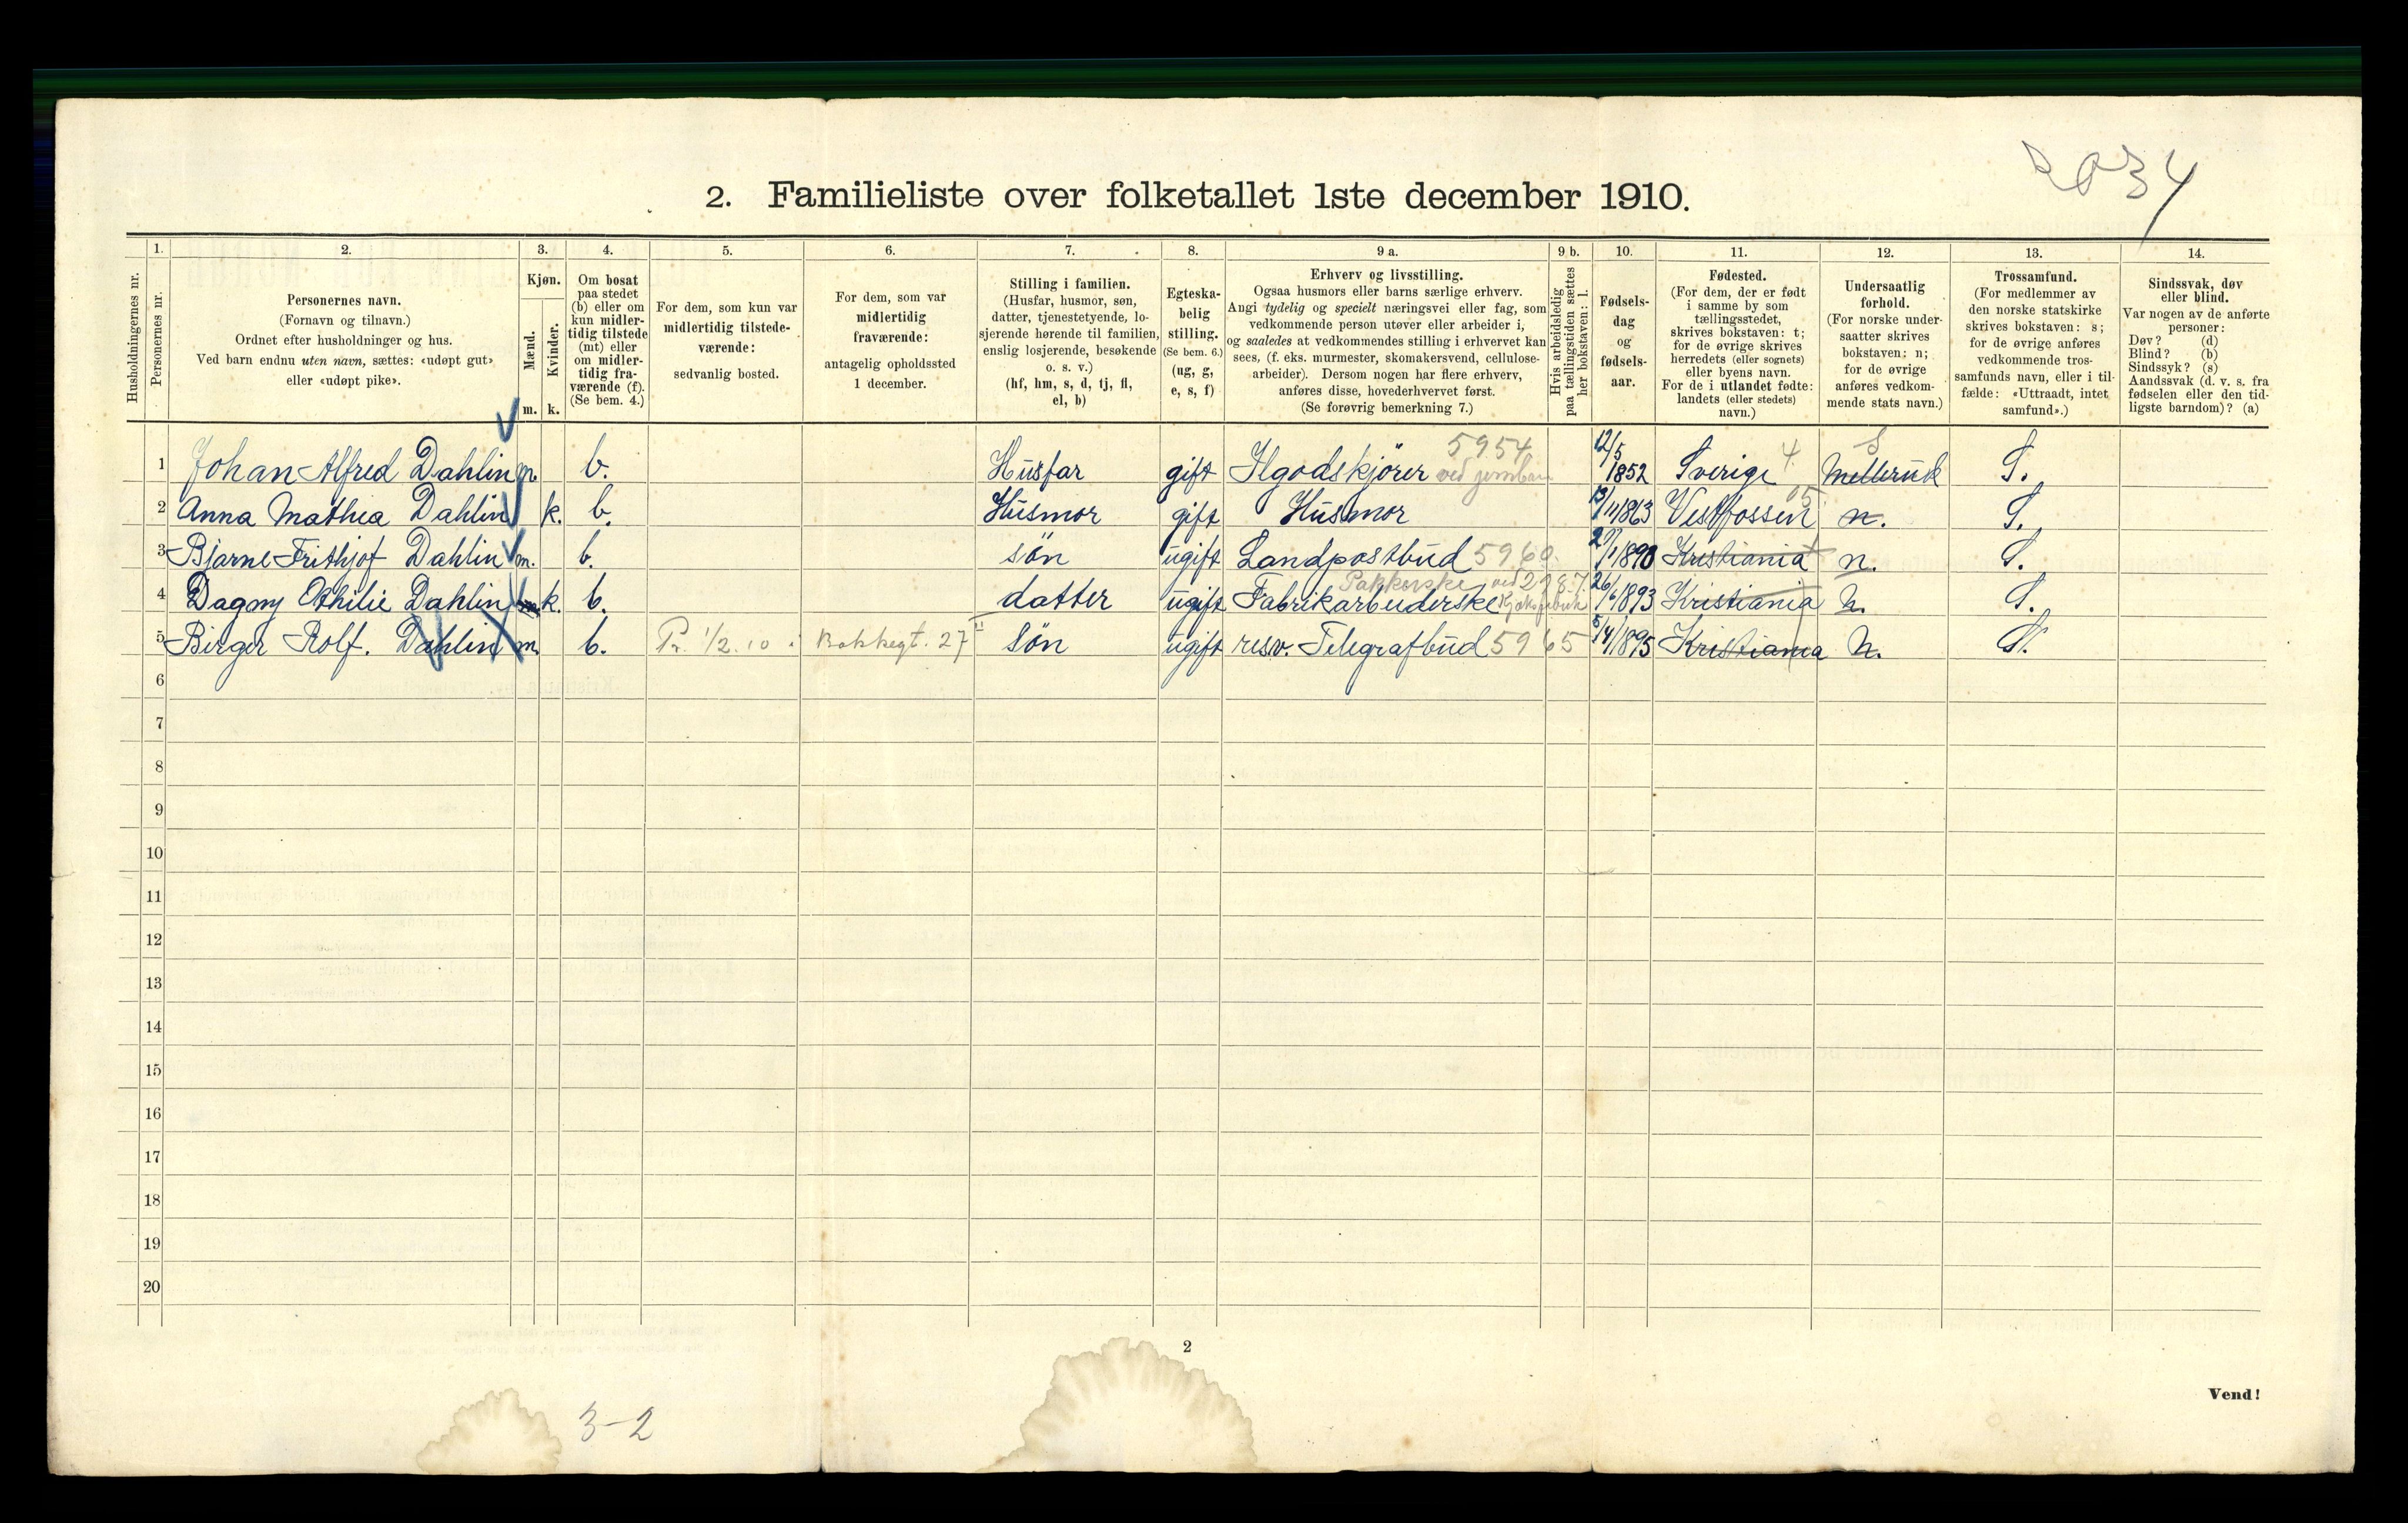 2034
2. Familieliste over folketallet 1ste december 1910.
Husholdningernes nr.
1.
Personernes nr.
2.
Personernes navn.
(Fornavn og tilnavn.)
Ordnet efter husholdninger og hus.
Ved barn endnu uten navn, sættes: «udøpt gut»
eller «udøpt pike».
3.
Kjøn.
Mænd.
Kvinder.
m. k.
4.
Om bosat
paa stedet
(b) eller om
kun midler-
tidig tilstede
(mt) eller
om midler-
tidig fra-
værende (f).
(Se bem. 4.)
5.
For dem, som kun var
midlertidig tilstede-
værende:
sedvanlig bosted.
6.
For dem, som var
midlertidig
fraværende:
antagelig opholdssted
1 december.
7.
Stilling i familien.
(Husfar, husmor, søn,
datter, tjenestetyende, lo-
sjerende hørende til familien,
enslig losjerende, besøkende
o. s. v.)
(hf, hm, s, d, tj, fl,
el, b)
8.
Egteska-
belig
stilling.
(Se bem. 6.)
(ug, g,
e, s, f)
9 a.
Erhverv og livsstilling.
Ogsaa husmors eller barns særlige erhverv.
Angi tydelig og specielt næringsvei eller fag, som
vedkommende person utøver eller arbeider i,
og saaledes at vedkommendes stilling i erhvervet kan
sees, (f. eks. murmester, skomakersvend, cellulose-
arbeider). Dersom nogen har flere erhverv,
anføres disse, hovederhvervet først.
(Se forøvrig bemerkning 7.)
9 b.
Hvis arbeidsledig
paa tællingstiden sættes
her bokstaven: l.
10.
Fødsels-
dag
og
fødsels-
aar.
11.
Fødested.
(For dem, der er født
i samme by som
tællingsstedet,
skrives bokstaven: t;
for de øvrige skrives
herredets (eller sognets)
eller byens navn.
For de i utlandet fødte:
landets (eller stedets)
navn.)
12.
Undersaatlig
forhold.
(For norske under-
saatter skrives
bokstaven: n;
for de øvrige
anføres vedkom-
mende stats navn.)
13.
Trossamfund.
(For medlemmer av
den norske statskirke
skrives bokstaven: s;
for de øvrige anføres
vedkommende tros-
samfunds navn, eller i til-
fælde: «Uttraadt, intet
samfund».)
14.
Sindssvak, døv
eller blind.
Var nogen av de anførte
personer:
Døv? (d)
Blind? (b)
Sindssyk? (s)
Aandssvak (d. v. s. fra
fødselen eller den tid-
ligste barndom)? (a)
1 Johan Alfred Dahlin m. b. Husfar gift Ilgodskjörer ved jernban 5954 12/5 1852 Sverige 4 Mellerud S S.
2 Anna Mathea Dahlin k. b. Husmor gift Husmor 13/11 1863 Vestfossen 05 n. S.
3 Bjarne Frithjof Dahlin m. b. sön ugift Landpostbud 5960. 27/1 1890 Kristiania t n. S.
4 Dagny Othilie Dahlin m. k. b. datter ugift Fabrikarbeiderske Pakkerske ved 2287 26/6 1893 Kristiania n. S.
5 Birger Rolf. Dahlin m. b. Pr. 1/2.10. Bakkegt. 27 II sön ugift resv. Telegrafbud 5965 5/4 1895 Kristiania n. S.
6
7
8
9
10
11
12
13
14
15
16
17
18
19
20
2
Vend!
3-2